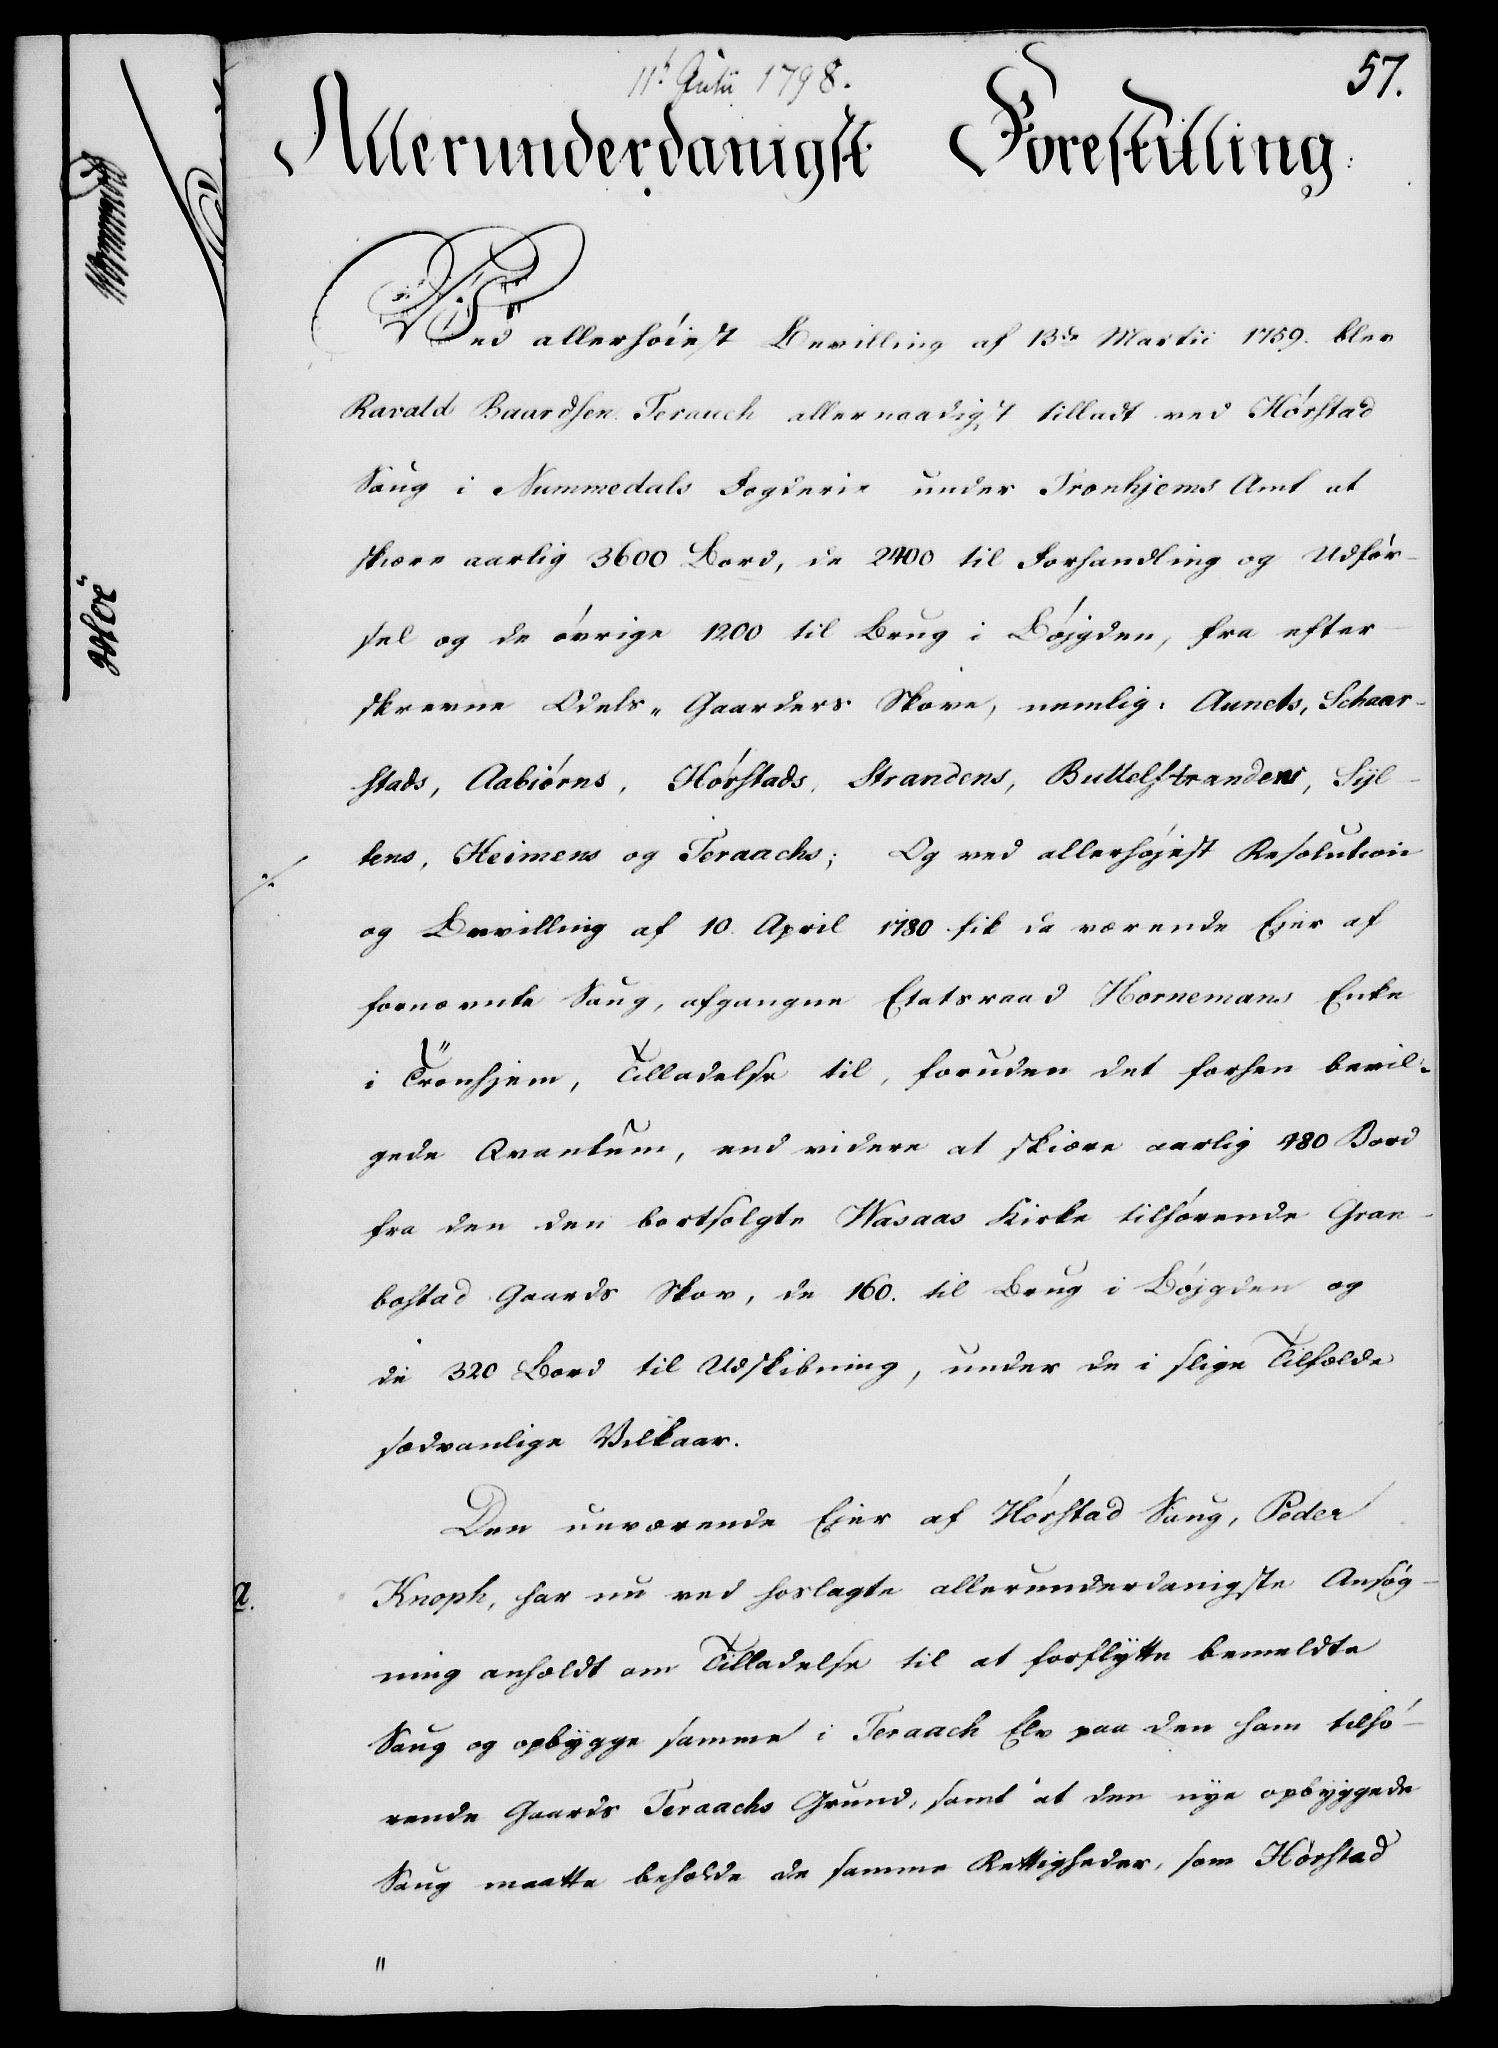 11t Julii 1798.
57.
Allerunderdanigst Forestilling.
Ved allerhöiest Bevilling af 13de Martii 1759. blev
Ravald Baardsen Terauch allernaadigst tilladt ved Hórstad
Saug i Nummedals Fogderie under Tronhjems Amt at
skiære aarlig 3600 Bord, de 2400 til Forhandling og Udför-
sel og de óvrige 1200 til Brug i Bójgden, fra efter-
skrevne Odels- Gaarders Skove, nemlig: Aunets, Schaar-
stads, Aabiórns, Hórstads, Strandens, Buttelstrandens, Syl-
tens, Heimens og Teraachs; Og ved allerhöjest Resolution
og Bevilling af 10. April 1780 fik da værende Ejer af
fornævnte Saug, afgangne Etatsraad Hornemans Enke
i Tronhjem, Tilladelse til, foruden det forhen bevil-
gede Qvantum, end videre at skiære aarlig 480 Bord
fra den den bortsolgte Wasaas Kirke tilhörende Gran-
bostad Gaards Skov, de 160. til Brug i Böjgden og
de 320 Bord til Udskibning, under de i slige Tilfælde
sædvanlige Vilkaar.
Den nuværende Ejer af Hórstad Saug, Peder
a.
Knoph, har nu ved hoslagte allerunderdanigste Ansög-
ning anholdt om Tilladelse til at forflytte bemeldte
Saug og opbygge samme i Teraach Elv paa den ham tilhö-
rende Gaards Teraachs Grund, samt at den nye opbyggede
Saug maatte beholde de samme Rettigheder, som Hórstad
"